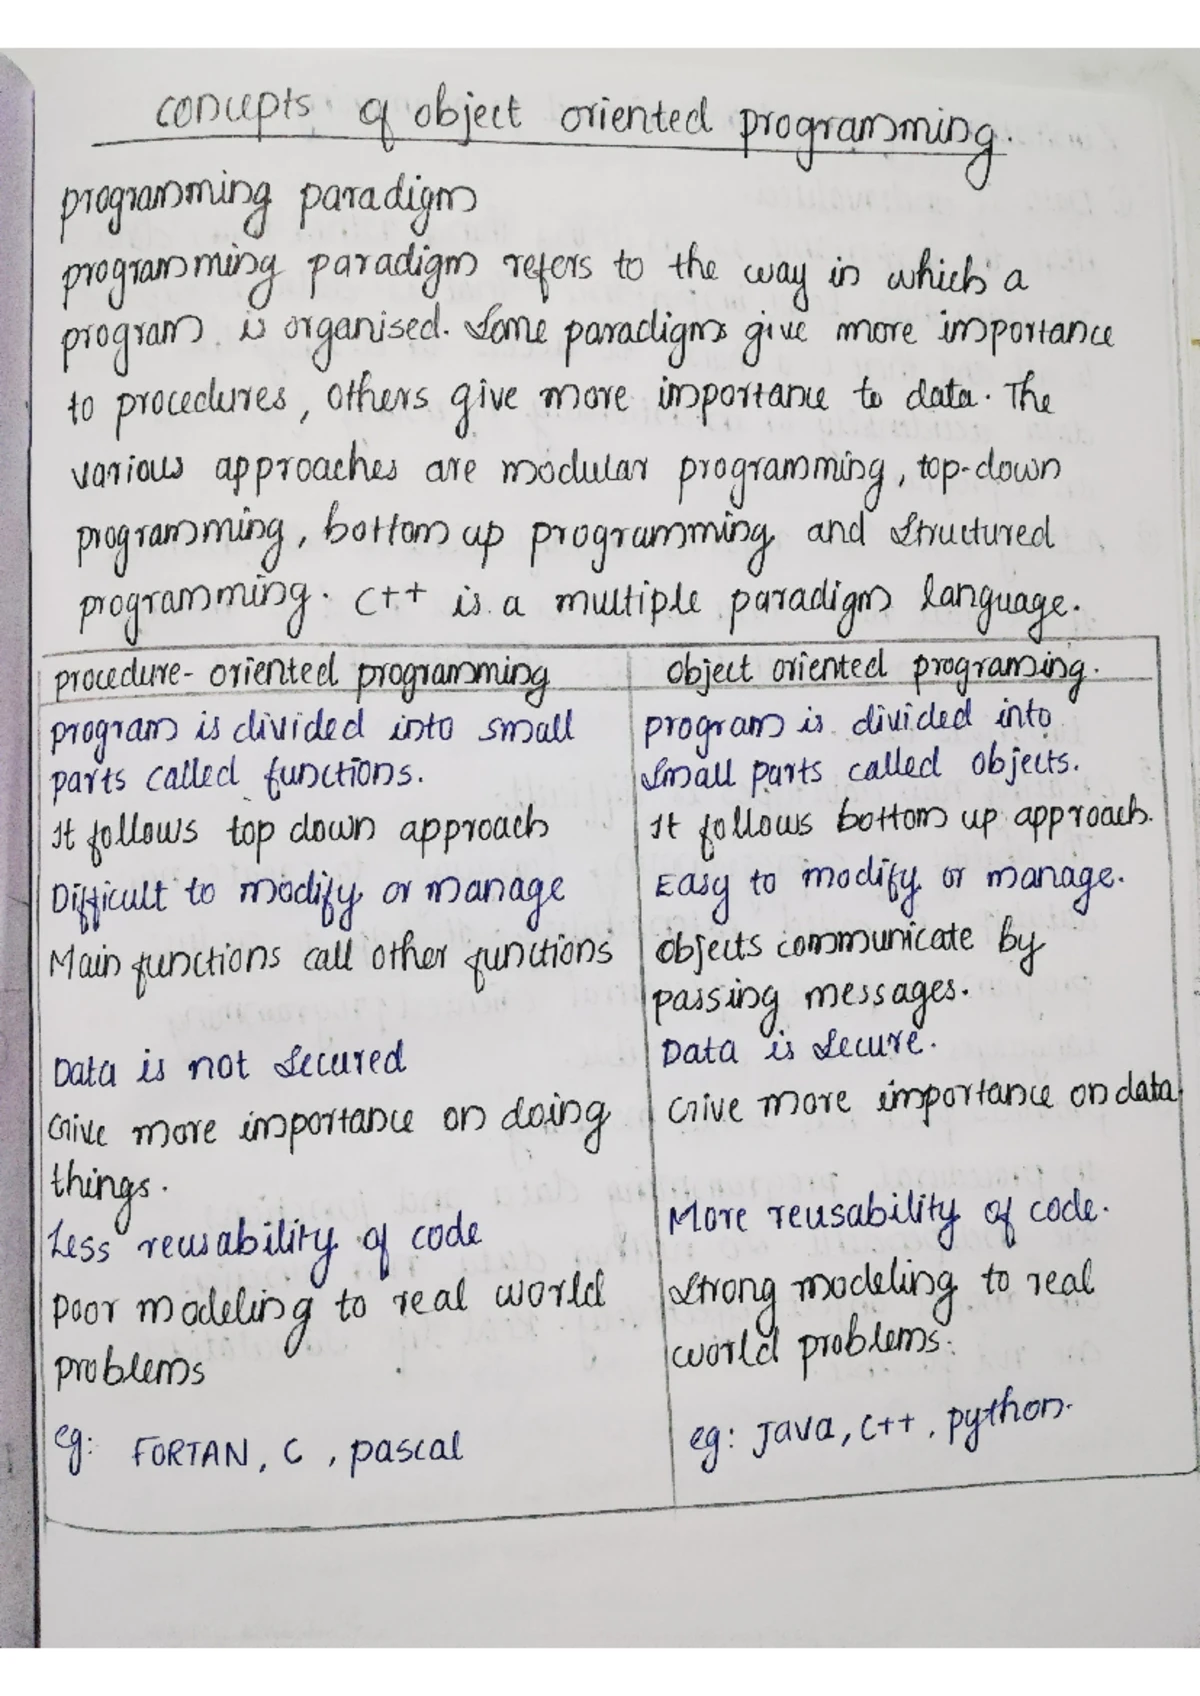 concepts of object oriented programming.
programming paradigm
programming paradigm refers to the way in which a
program is organised. Some paradigms give more importance
to procedures, others give more importance to data. The
various approaches are modular programming, top-down
programming, bottom up programming and structured
programming. C++ is a multiple paradigm language.
procedure-oriented programming
program is divided into small
parts called functions.
It follows top down approach
Difficult to modify or manage
Main functions call other functions
Data is not secured
Give more importance on doing
things.
Less reusability of code
poor modeling to real world
problems
eg: FORTAN, C, pascal
object oriented programing.
program is divided into
small parts called objects.
It follows bottom up approach.
Easy to modify or manage.
objects communicate by
passing messages.
Data is secure.
Give more importance on data.
More reusability of code.
Strong modeling to real
world problems.
eg: Java, C++, python.